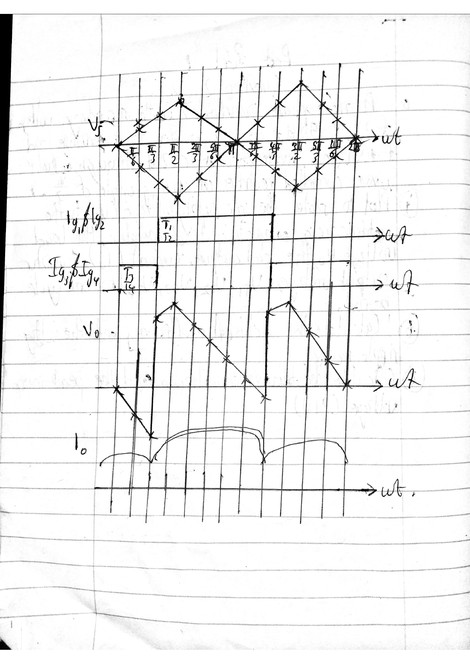 Vs
ωt
π/6 π/3 π/2 2π/3 5π/6 π 7π/6 4π/3 3π/2 5π/3 11π/6 2π
Ig1 & Ig2
T1
T2
ωt
Ig3 & Ig4
T3
T4
ωt
Vo
ωt
Io
ωt